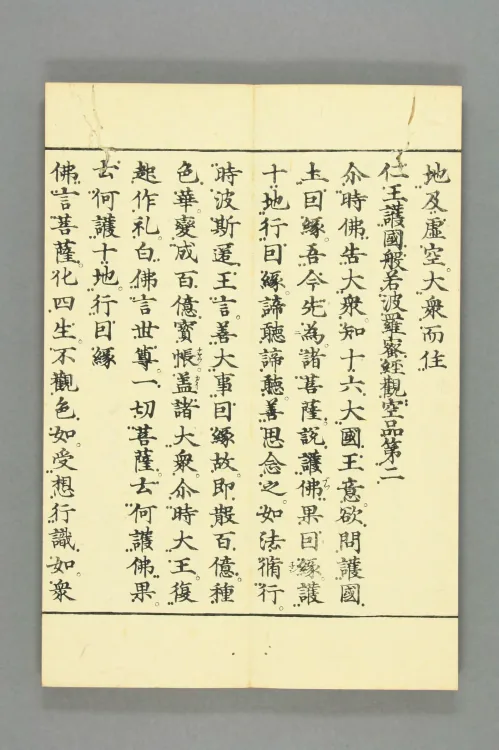 地及虛空大衆而住
仁王護國般若波羅蜜經觀空品第二
尒時佛告大衆知十六大國王意欲問護國
土因縁吾今先為諸菩薩說護佛果因縁護
十地行因縁諦聽諦聽善思念之如法脩行
時波斯匿王言善大事因縁故即散百億種
色華變成百億寳帳盖諸大衆尒時大王復
起作礼白佛言世尊一切菩薩云何護佛果
云何護十地行因縁
佛言菩薩化四生不觀色如受想行識如衆